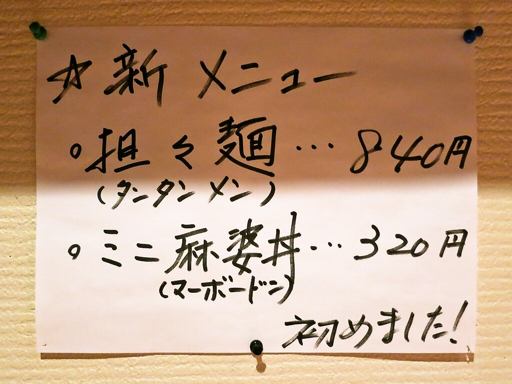 ☆新メニュー
。担々麺…840円
(タンタンメン)
。ミニ麻婆丼…320円
(マーボードン)
初めました!